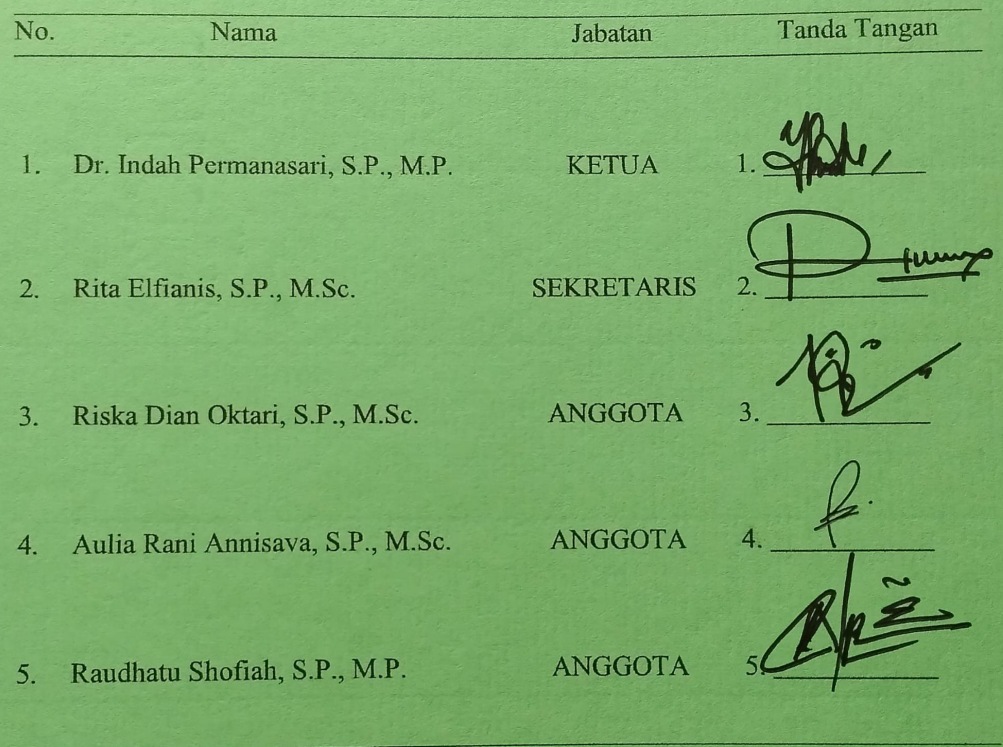 No. Nama Jabatan Tanda Tangan
1. Dr. Indah Permanasari, S.P., M.P. KETUA 1.
2. Rita Elfianis, S.P., M.Sc. SEKRETARIS 2.
3. Riska Dian Oktari, S.P., M.Sc. ANGGOTA 3.
4. Aulia Rani Annisava, S.P., M.Sc. ANGGOTA 4.
5. Raudhatu Shofiah, S.P., M.P. ANGGOTA 5.